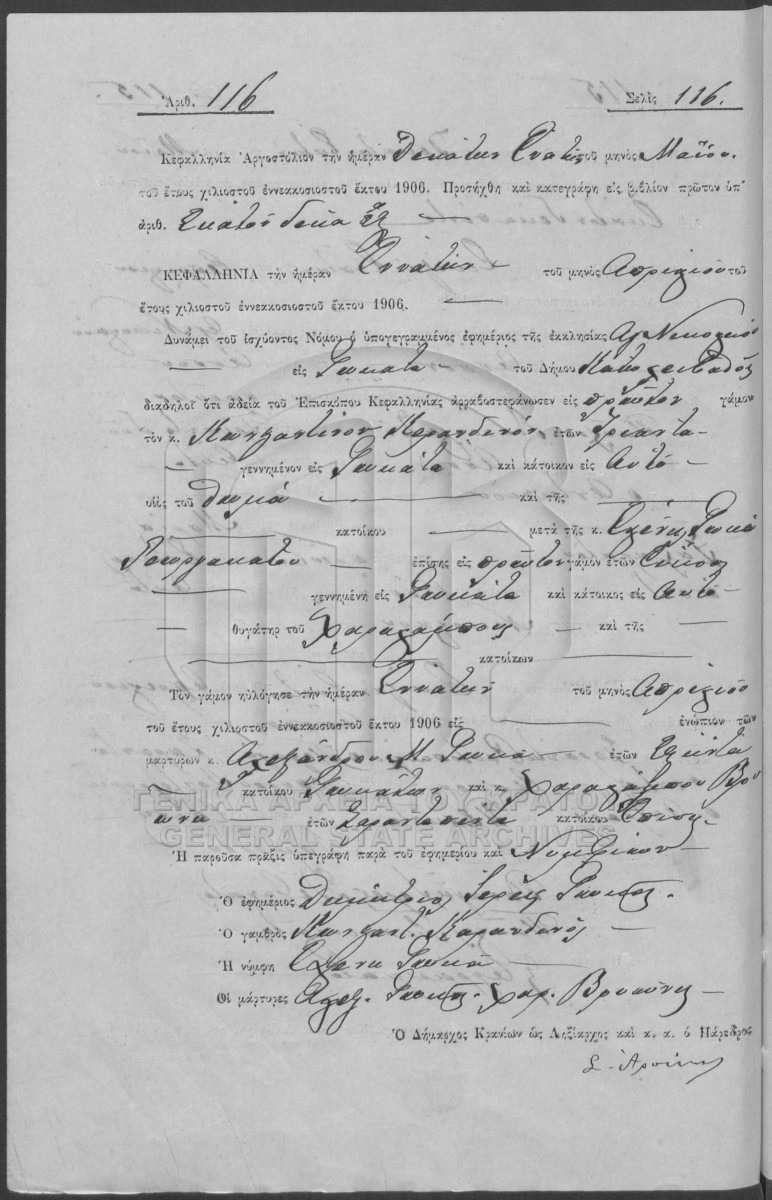 Ἀριθ. 116 Σελὶς 116.
Κεφαλληνία Ἀργοστόλιον τὴν ἡμέραν δεκάτην ἐνάτην τοῦ μηνὸς Μαΐου
τοῦ ἔτους χιλιοστοῦ ἐννεακοσιοστοῦ ἕκτου 1906. Προσήχθη καὶ κατεγράφη εἰς βιβλίον πρῶτον ὑπ'
ἀριθ. Ἑκατὸν δέκα ἓξ
ΚΕΦΑΛΛΗΝΙΑ τὴν ἡμέραν Ἐννάτην τοῦ μηνὸς Ἀπριλίου τοῦ
ἔτους χιλιοστοῦ ἐννεακοσιοστοῦ ἕκτου 1906.
Δυνάμει τοῦ ἰσχύοντος Νόμου ὁ ὑπογεγραμμένος ἐφημέριος τῆς ἐκκλησίας Ἁγ Νικολάου
εἰς τοῦ Δήμου
διαδηλοῖ ὅτι ἀδείᾳ τοῦ Ἐπισκόπου Κεφαλληνίας ἀρραβοστεφάνωσεν εἰς πρῶτον γάμον
τὸν κ. Κωνσαντῖνον Καρανδινόν ἐτῶν Τριάντα
γεννημένον εἰς καὶ κάτοικον εἰς Αὐτό
υἱὸς τοῦ Θωμᾶ καὶ τῆς
κατοίκου μετὰ τῆς κ. Ἑλένης Φωκᾶ
Γεωργακάτου ἐπίσης εἰς πρῶτον γάμον ἐτῶν Εἴκοσι
γεννημένη εἰς καὶ κάτοικος εἰς Αὐτό
θυγάτηρ τοῦ Χαραλάμπους καὶ τῆς
κατοίκων
Τὸν γάμον ηὐλόγησε τὴν ἡμέραν Ἐννάτην τοῦ μηνὸς Ἀπριλίου
τοῦ ἔτους χιλιοστοῦ ἐννεακοσιοστοῦ ἕκτου 1906 εἰς ἐνώπιον τῶν
μαρτύρων κ. Ἀλεξάνδρου Μ Φωκᾶ ἐτῶν Ἑξήντα
κατοίκου καὶ κ. Χαραλάμπου Βρυ
ώνη ἐτῶν Σαραντα πέντε κατοίκου Ἐπίσης
ΓΕΝΙΚΑ ΑΡΧΕΙΑ ΤΟΥ ΚΡΑΤΟΥΣ
GENERAL STATE ARCHIVES
Ἡ παροῦσα πρᾶξις ὑπεγράφη παρὰ τοῦ ἐφημερίου καὶ
Ὁ ἐφημέριος Δημήτριος Ἱερεὺς Φωκᾶς.
Ὁ γαμβρὸς Κωνσαντ. Καρανδινός
Ἡ νύμφη Ἑλένη Φωκᾶ
Οἱ μάρτυρες Ἀλεξ. Φωκᾶς. Χαρ. Βρυώνης
Ὁ Δήμαρχος Κρανίων ὡς Ληξίαρχος καὶ κ. κ. ὁ Πάρεδρος